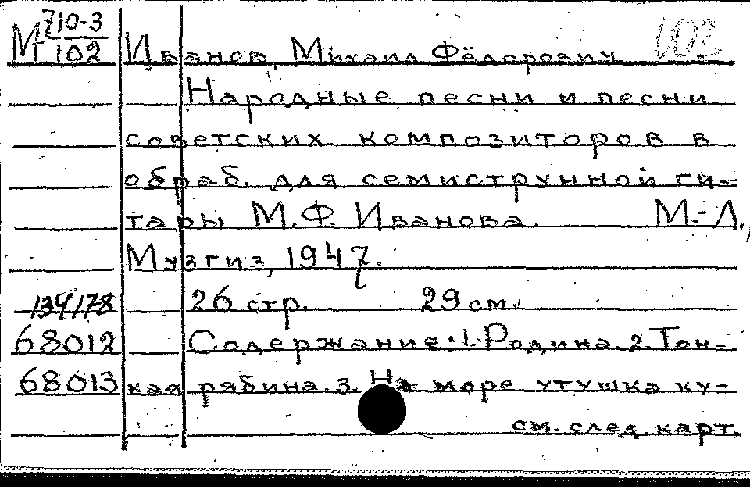 М 710-3
Г 102 Иванов, Михаил Фёдорович 102
Народные песни и песни
советских композиторов в
обраб. для семиструнной ги-
тары М.Ф. Иванова. М.-Л.,
Музгиз, 1947.
134178 26 стр. 29 см.
68012 Содержание: 1. Родина. 2. Тон-
68013 кая рябина. 3. На море утушка ку-
см. след. карт.